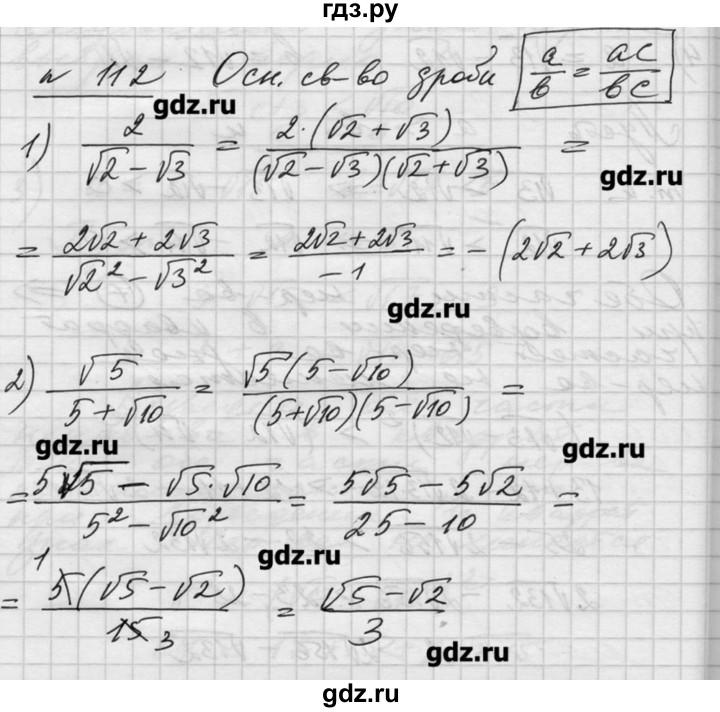 гдз.ру
№ 112 Осн. св-во дроби a/b = ac/bc
gdz.ru
1) 2/(√2 − √3) = 2·(√2 + √3)/((√2 − √3)(√2 + √3)) =
gdz.ru
= (2√2 + 2√3)/(√2² − √3²) = (2√2 + 2√3)/−1 = −(2√2 + 2√3)
gdz.ru
2) √5/(5 + √10) = √5(5 − √10)/((5 + √10)(5 − √10)) =
gdz.ru
gdz.ru
= (5√5 − √5·√10)/(5² − √10²) = (5√5 − 5√2)/(25 − 10) =
gdz.ru
= 1 5(√5 − √2)/15 3 = (√5 − √2)/3
gdz.ru
gdz.ru